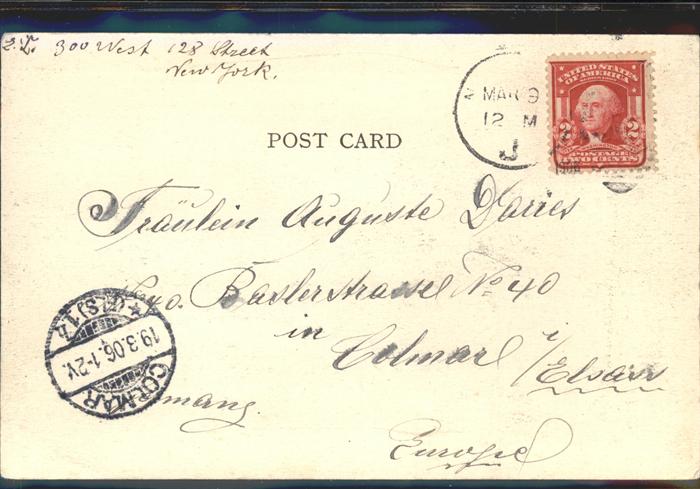 300 West 128 Street
New York.
MAR 9
12 M
J
1906
UNITED STATES
OF AMERICA
2 2
POSTAGE
TWO CENTS
POST CARD
Fräulein Auguste Dorries
No 40. Baslerstrasse No 40
in
Colmar i/Elsass
COLMAR
19.3.06.1-2V.
Europe